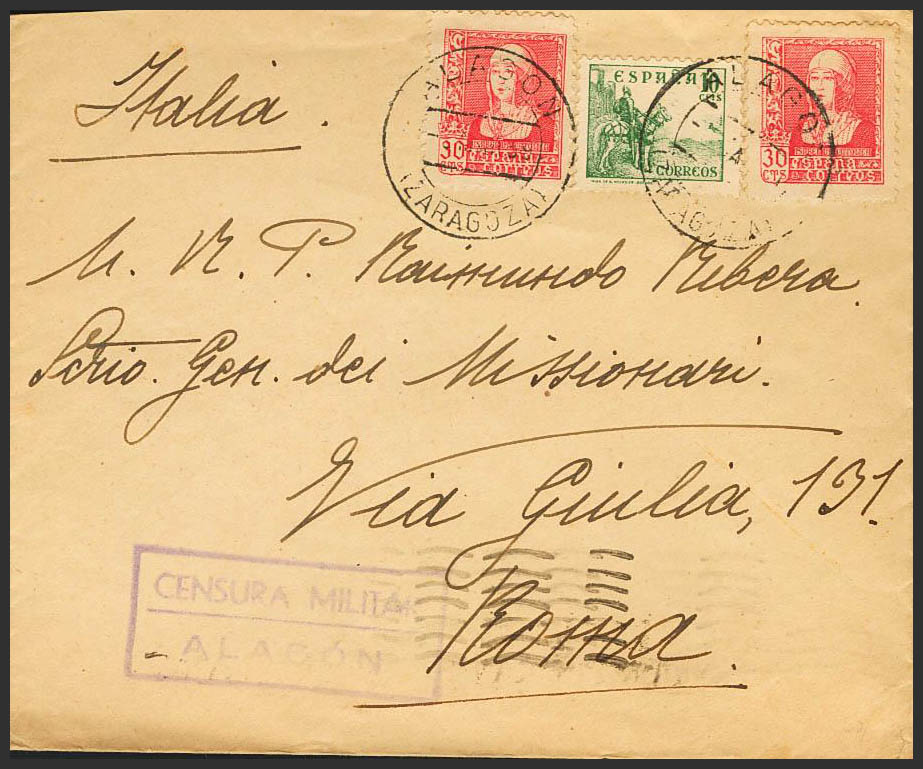 Italia.
ALAGON
(ZARAGOZA)
30
CTS
ESPAÑA
CORREOS
ESPAÑA
10
CTS
CORREOS
ALAGO
30
CTS
ESPAÑA
CORREOS
M. R. P. Raimundo Ribera.
Scrio. Gen. dei Missionari.
Via Giulia, 131.
Roma.
CENSURA MILITAR
ALAGÓN